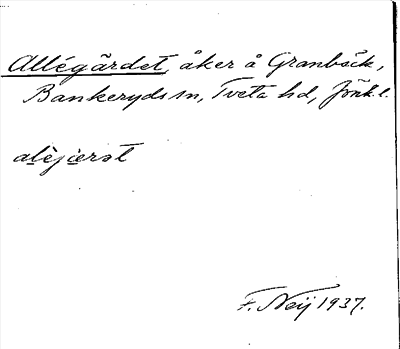 Allégärdet, åker å Granbäck,
Bankeryds sn, Tveta hd, Jönk. l.
alejierət
F. Neij 1937.